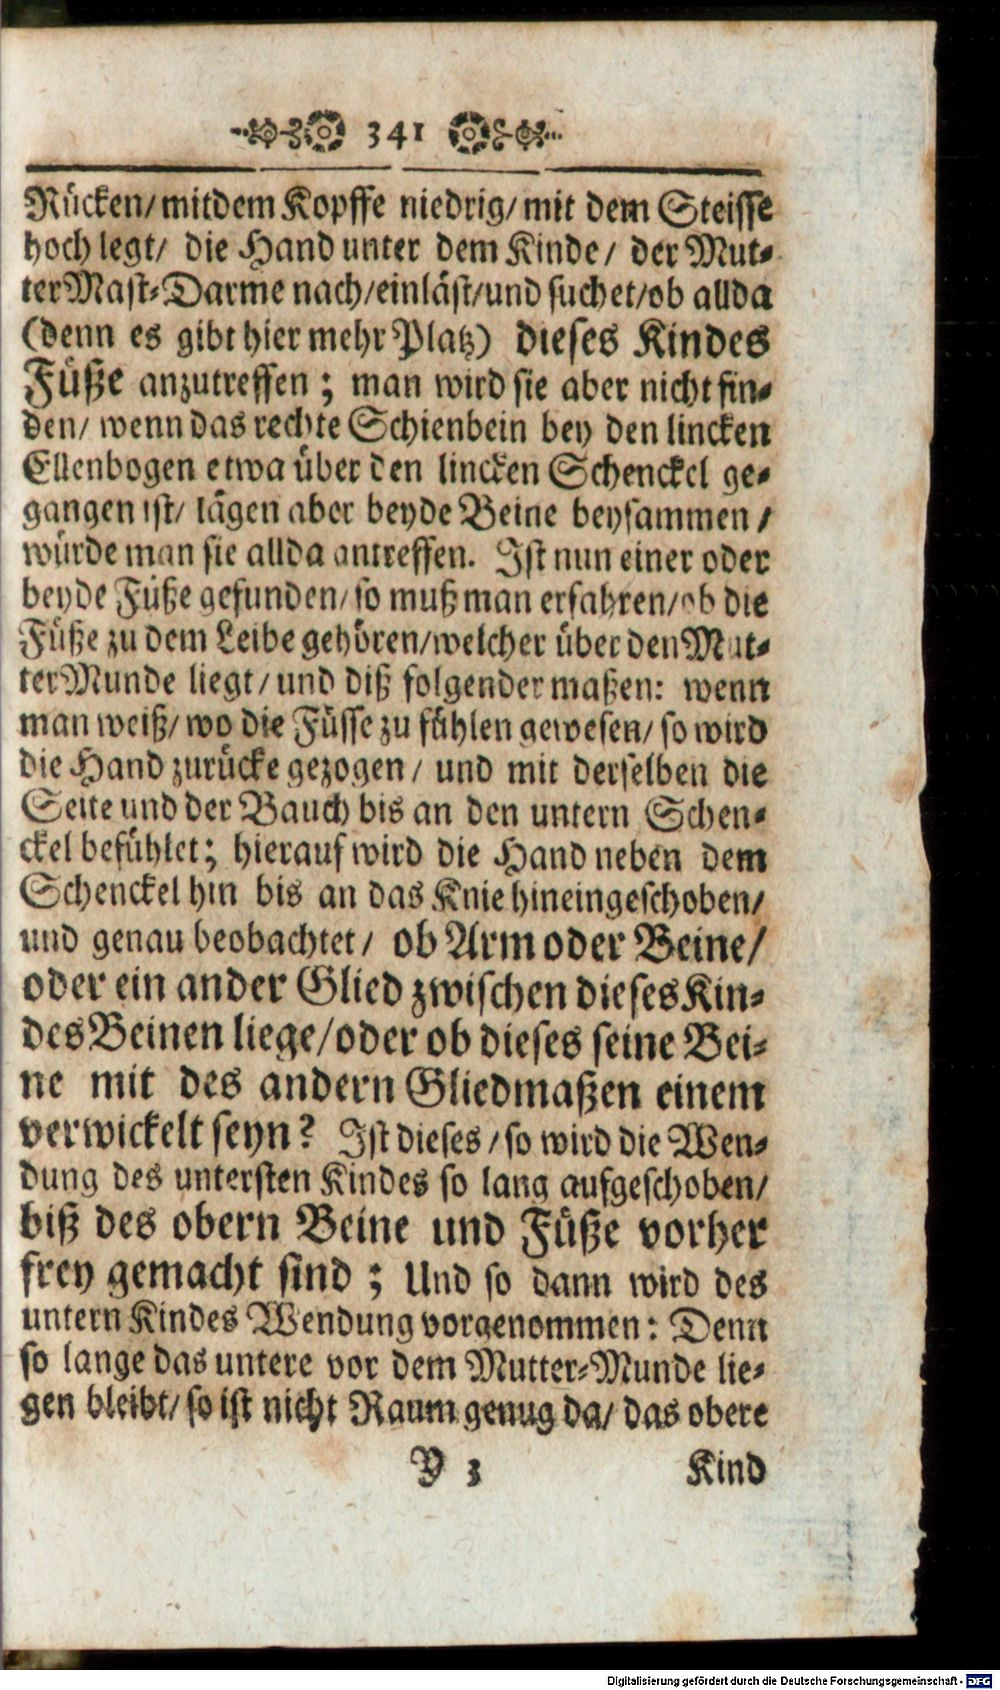 341
Rücken/ mit dem Kopffe niedrig/ mit dem Steisse
hoch legt/ die Hand unter dem Kinde/ der Mut-
ter Mast-Darme nach/ einläst/ und suchet/ ob allda
(denn es gibt hier mehr Platz) dieses Kindes
Füße anzutreffen; man wird sie aber nicht fin-
den/ wenn das rechte Schienbein bey den lincken
Ellenbogen etwa über den lincken Schenckel ge-
gangen ist/ lägen aber beyde Beine beysammen/
würde man sie allda antreffen. Ist nun einer oder
beyde Füße gefunden/ so muß man erfahren/ ob die
Füße zu dem Leibe gehören/ welcher über den Mut-
ter Munde liegt/ und diß folgender maßen: wenn
man weiß/ wo die Füsse zu fühlen gewesen/ so wird
die Hand zurücke gezogen/ und mit derselben die
Seite und der Bauch bis an den untern Schen-
ckel befühlet; hierauf wird die Hand neben dem
Schenckel hin bis an das Knie hineingeschoben/
und genau beobachtet/ ob Arm oder Beine/
oder ein ander Glied zwischen dieses Kin-
des Beinen liege/ oder ob dieses seine Bei-
ne mit des andern Gliedmaßen einem
verwickelt seyn? Ist dieses/ so wird die Wen-
dung des untersten Kindes so lang aufgeschoben/
biß des obern Beine und Füße vorher
frey gemacht sind; Und so dann wird des
untern Kindes Wendung vorgenommen: Denn
so lange das untere vor dem Mutter-Munde lie-
gen bleibt/ so ist nicht Raum genug da/ das obere
Y 3 Kind
Digitalisierung gefördert durch die Deutsche Forschungsgemeinschaft - DFG